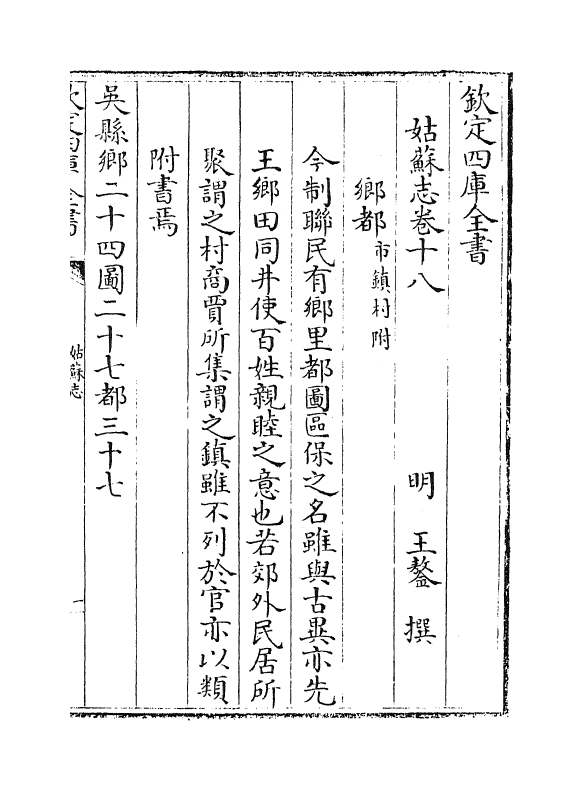 欽定四庫全書
姑蘇志卷十八
明 王鏊 撰
鄉都市鎮村附
今制聯民有鄉里都圖區保之名雖與古異亦先
王鄉田同井使百姓親睦之意也若郊外民居所
聚謂之村商賈所集謂之鎮雖不列於官亦以類
附書焉
吳縣鄉二十四圖二十七都三十七
姑蘇志
一